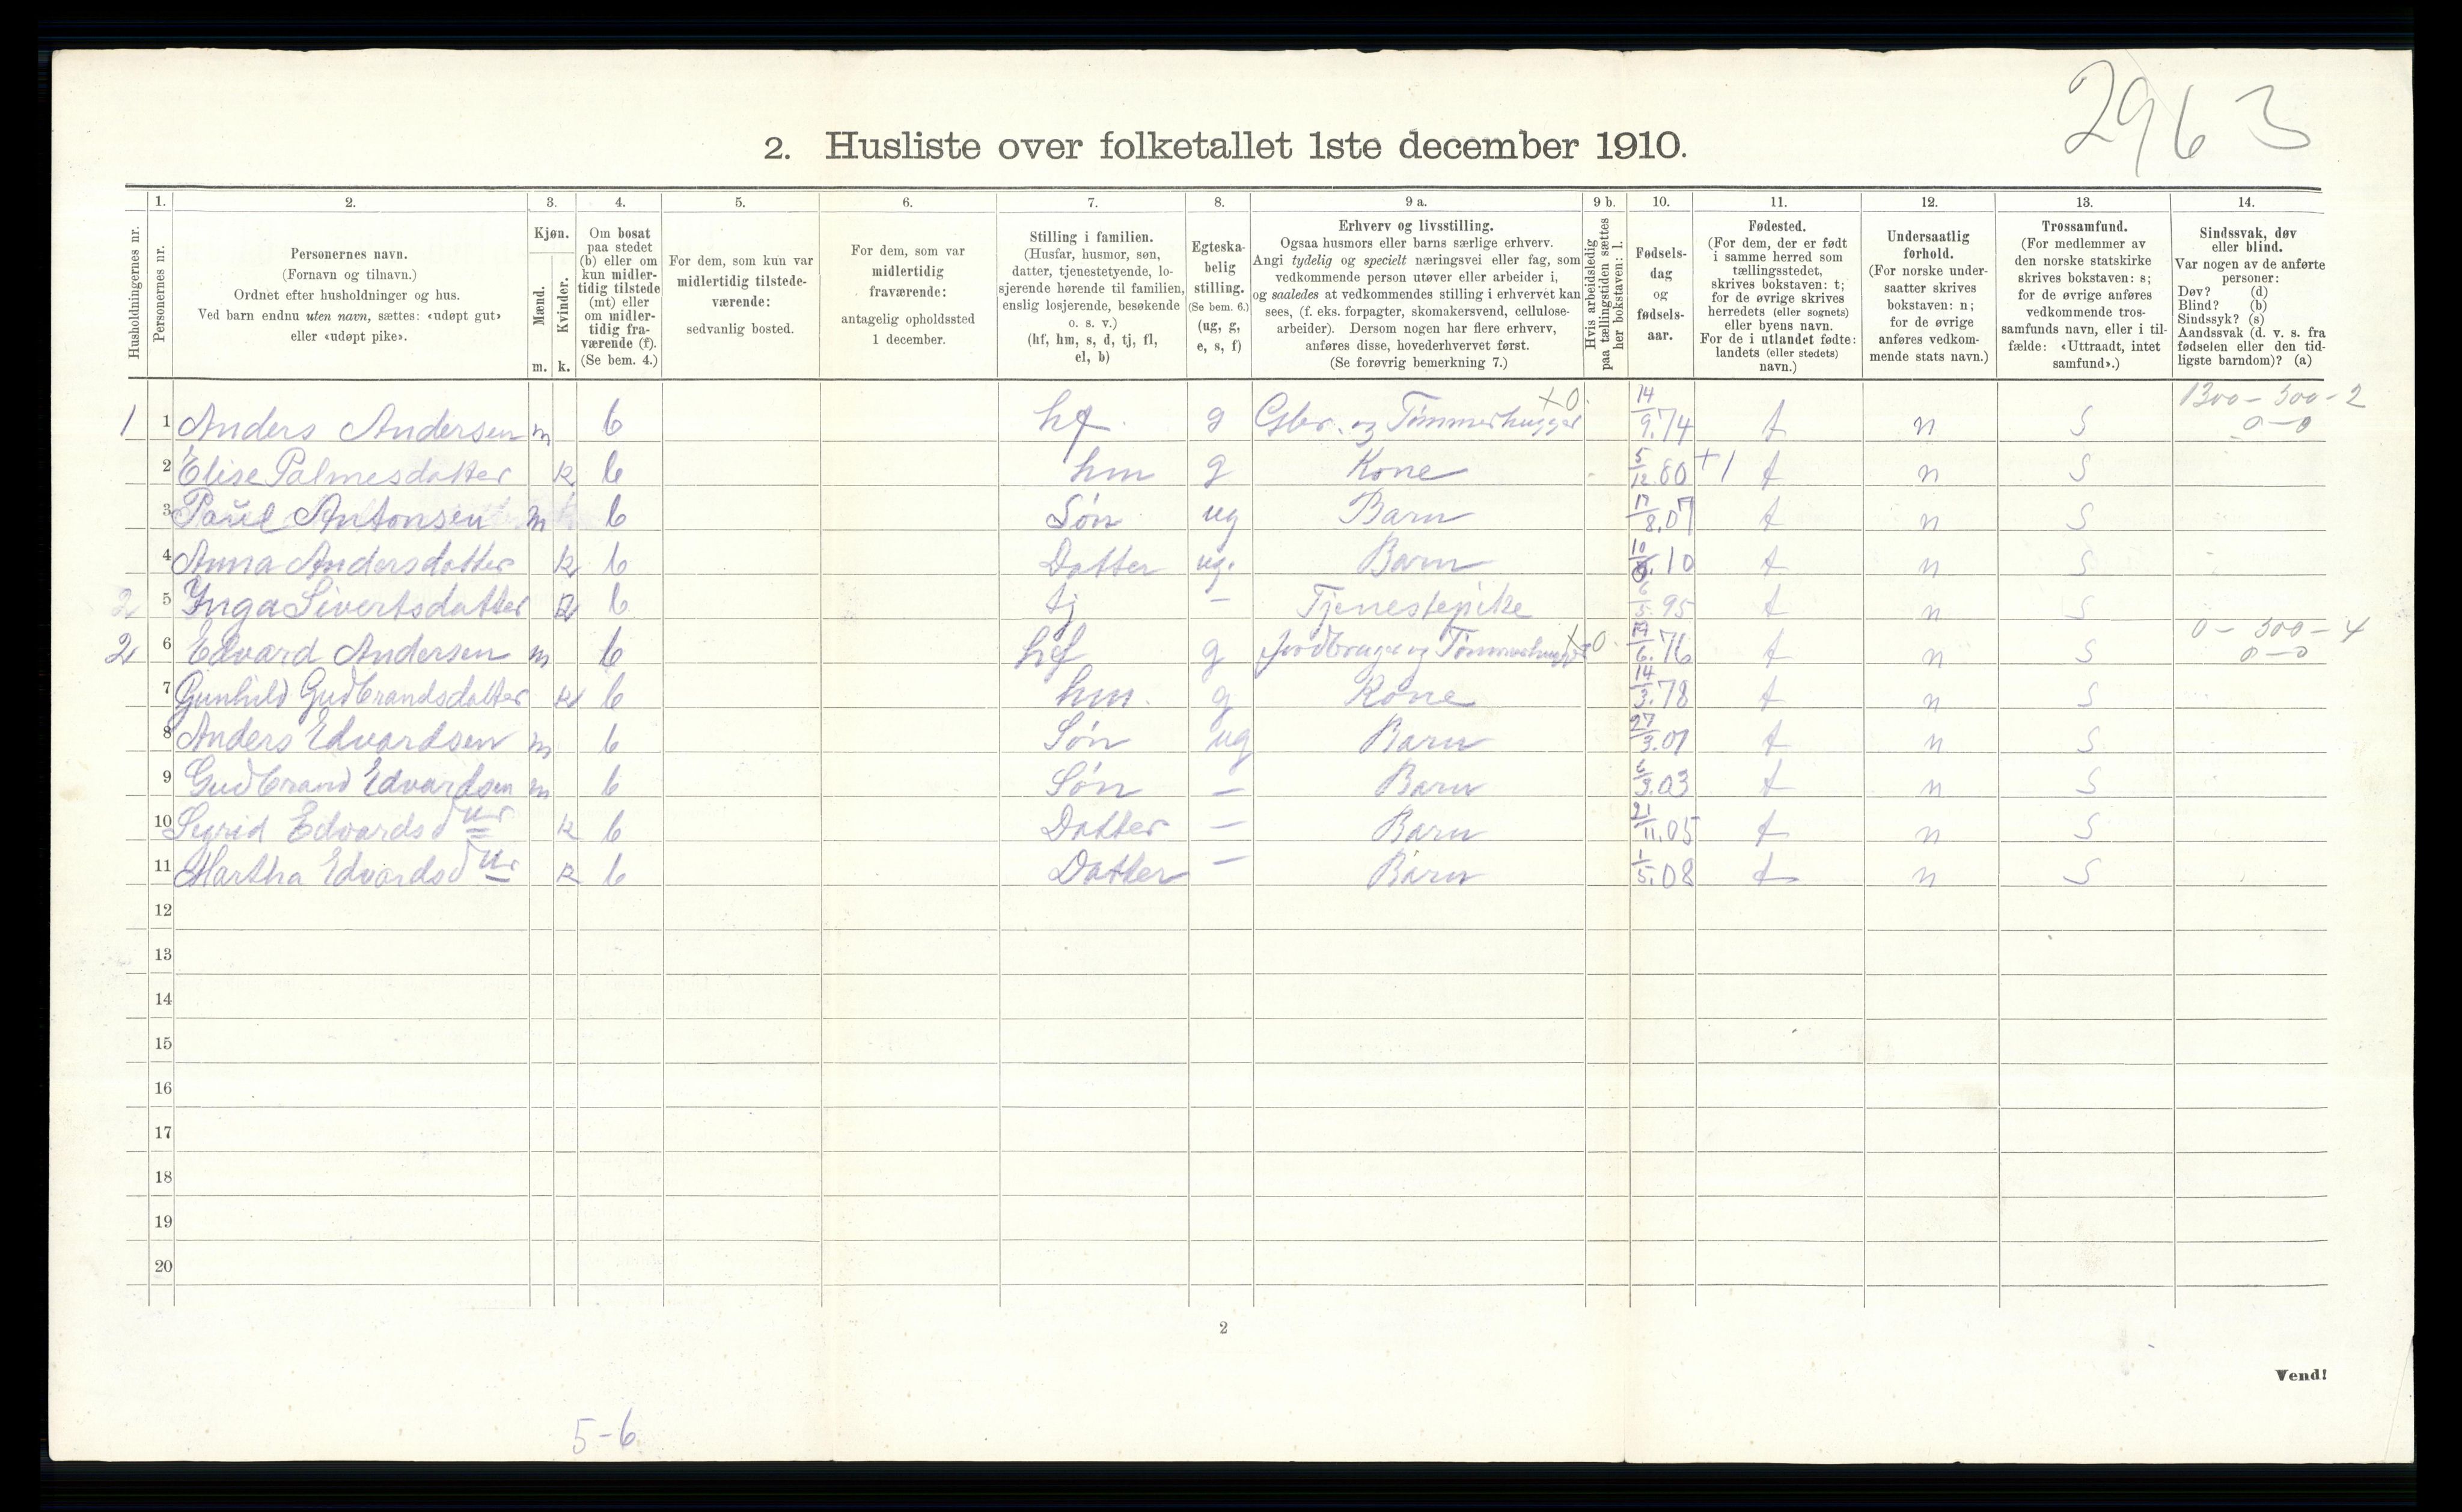 2963
2. Husliste over folketallet 1ste december 1910.
Husholdningernes nr.
1. Personernes nr.
2. Personernes navn.
(Fornavn og tilnavn.)
Ordnet efter husholdninger og hus.
Ved barn endnu uten navn, sættes: «udøpt gut»
eller «udøpt pike».
3. Kjøn.
Mænd. m.
Kvinder. k.
4. Om bosat
paa stedet
(b) eller om
kun midler-
tidig tilstede
(mt) eller
om midler-
tidig fra-
værende (f).
(Se bem. 4.)
5. For dem, som kun var
midlertidig tilstede-
værende:
sedvanlig bosted.
6. For dem, som var
midlertidig
fraværende:
antagelig opholdssted
1 december.
7. Stilling i familien.
(Husfar, husmor, søn,
datter, tjenestetyende, lo-
sjerende hørende til familien,
enslig losjerende, besøkende
o. s. v.)
(hf, hm, s, d, tj, fl,
el, b)
8. Egteska-
belig
stilling.
(Se bem. 6.)
(ug, g,
e, s, f)
9 a. Erhverv og livsstilling.
Ogsaa husmors eller barns særlige erhverv.
Angi tydelig og specielt næringsvei eller fag, som
vedkommende person utøver eller arbeider i,
og saaledes at vedkommendes stilling i erhvervet kan
sees, (f. eks. forpagter, skomakersvend, cellulose-
arbeider). Dersom nogen har flere erhverv,
anføres disse, hovederhvervet først.
(Se forøvrig bemerkning 7.)
9 b. Hvis arbeidsledig
paa tællingstiden sættes
her bokstaven: l.
10. Fødsels-
dag
og
fødsels-
aar.
11. Fødested.
(For dem, der er født
i samme herred som
tællingsstedet,
skrives bokstaven: t;
for de øvrige skrives
herredets (eller sognets)
eller byens navn.
For de i utlandet fødte:
landets (eller stedets)
navn.)
12. Undersaatlig
forhold.
(For norske under-
saatter skrives
bokstaven: n;
for de øvrige
anføres vedkom-
mende stats navn.)
13. Trossamfund.
(For medlemmer av
den norske statskirke
skrives bokstaven: s;
for de øvrige anføres
vedkommende tros-
samfunds navn, eller i til-
fælde: «Uttraadt, intet
samfund».)
14. Sindssvak, døv
eller blind.
Var nogen av de anførte
personer:
Døv? (d)
Blind? (b)
Sindssyk? (s)
Aandssvak (d. v. s. fra
fødselen eller den tid-
ligste barndom)? (a)
1 1 Anders Andersen m b hf g Gbr. og Tømmerhugger x0 14/9.74 t n S 1300-300-2 0-0
2 Elise Palmesdatter k b hm g Kone 5/12.80 +1 t n S
3 Paul Antonsen m b Søn ug Barn 17/8.07 t n S
4 Anna Andersdatter k b Datter ug. Barn 10 10 t n S
2 5 Inga Sivertsdatter k b tj – Tjenestepike 6/5.95 t n S
2 6 Edvard Andersen m b hf g Jordbruger og Tømmerhugger x0 6.76 t n S 0-300-4 0-0
7 Gunhild Gudbrandsdatter k b hm g Kone 14/3.78 t n S
8 Anders Edvardsen m b Søn ug Barn 27/3.01 t n S
9 Gudbrand Edvardsen m b Søn – Barn 6/3.03 t n S
10 Sigrid Edvardsdtr k b Datter – Barn 21/11.05 t n S
11 Martha Edvardsdtr k b Datter – Barn 1/5.08 t n S
12
13
14
15
16
17
18
19
20
2
Vend!
5-6